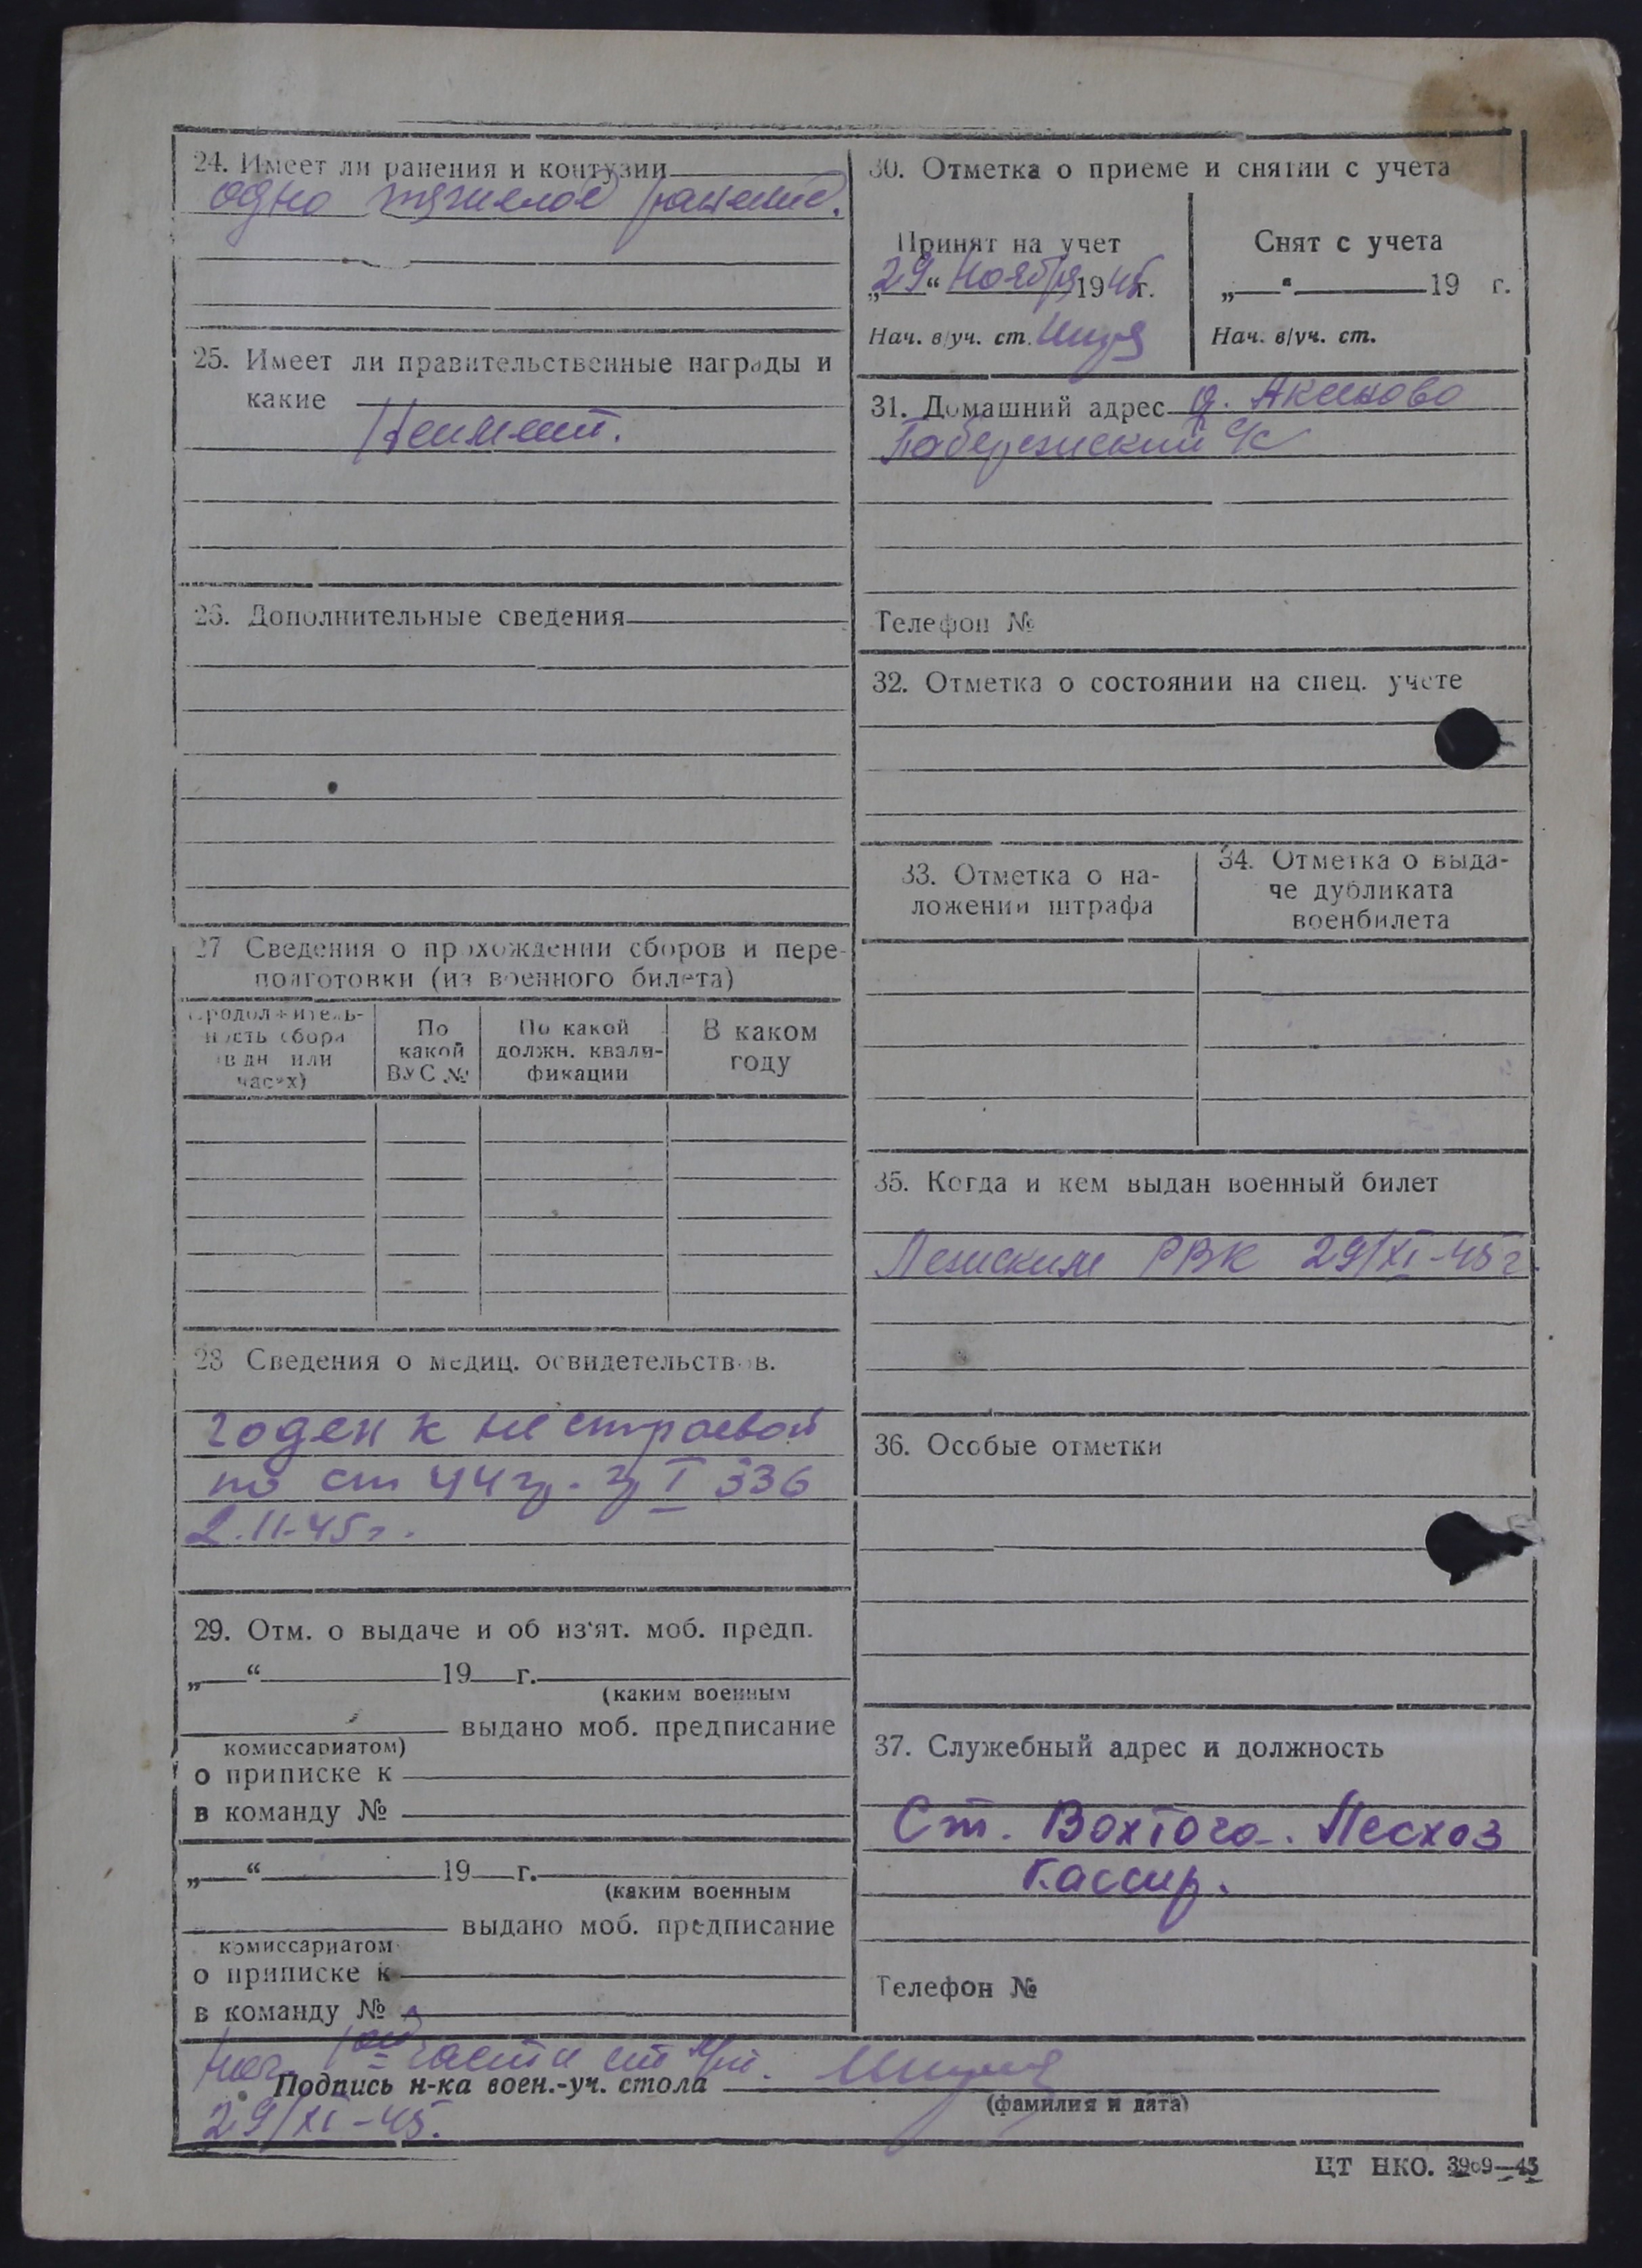 24. Имеет ли ранения и контузии
одно тяжелое ранение.
25. Имеет ли правительственные награды и
какие
Неимеет.
26. Дополнительные сведения
27 Сведения о прохождении сборов и пере-
подготовки (из военного билета)
Продолжитель-
ность сбора
(в дн или
часах)
По
какой
ВУС №
По какой
должн. квали-
фикации
В каком
году
28 Сведения о медиц. освидетельствов.
годен к не строевой
по ст 44 гр. I 336
2.II-45г.
29. Отм. о выдаче и об из'ят. моб. предп.
„ “ 19 г.
(каким военным
выдано моб. предписание
комиссариатом)
о приписке к
в команду №
„ “ 19 г.
(каким военным
выдано моб. предписание
комиссариатом
о приписке к
в команду №
30. Отметка о приеме и снятии с учета
Принят на учет
„29“ Ноября 1945г.
Нач. в/уч. ст.
Снят с учета
„ “ 19 г.
Нач. в/уч. ст.
31. Домашний адрес д. Аксеново
с/с
Телефон №
32. Отметка о состоянии на спец. учете
33. Отметка о на-
ложении штрафа
34. Отметка о выда-
че дубликата
военбилета
35. Когда и кем выдан военный билет
Лежским РВК 29/XI-45г.
36. Особые отметки
37. Служебный адрес и должность
Ст. Вохтога. Лесхоз
Кассир.
Телефон №
Нач. 1ой части ст
Подпись н-ка воен.-уч. стола
(фамилия и дата)
29/XI-45.
ЦТ НКО. 3909—45